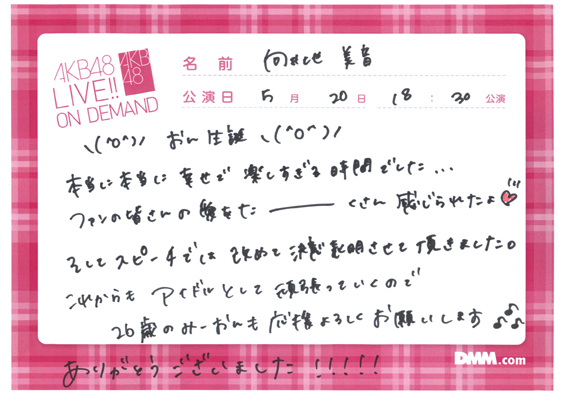 AKB48
LIVE!!
ON DEMAND
AKB
48
名 前 向井地 美音
公演日 5 月 20 日 18 : 30 公演
\(^o^)/ おん生誕 \(^o^)/
本当に本当に幸せで楽しすぎる時間でした...
ファンの皆さんの愛をた――――くさん感じられたよ
そしてスピーチでは改めて決意表明させて頂きました。
これからもアイドルとして頑張っていくので
26歳のみーおんも応援よろしくお願いします
ありがとうございました!!!!!
DMM.com